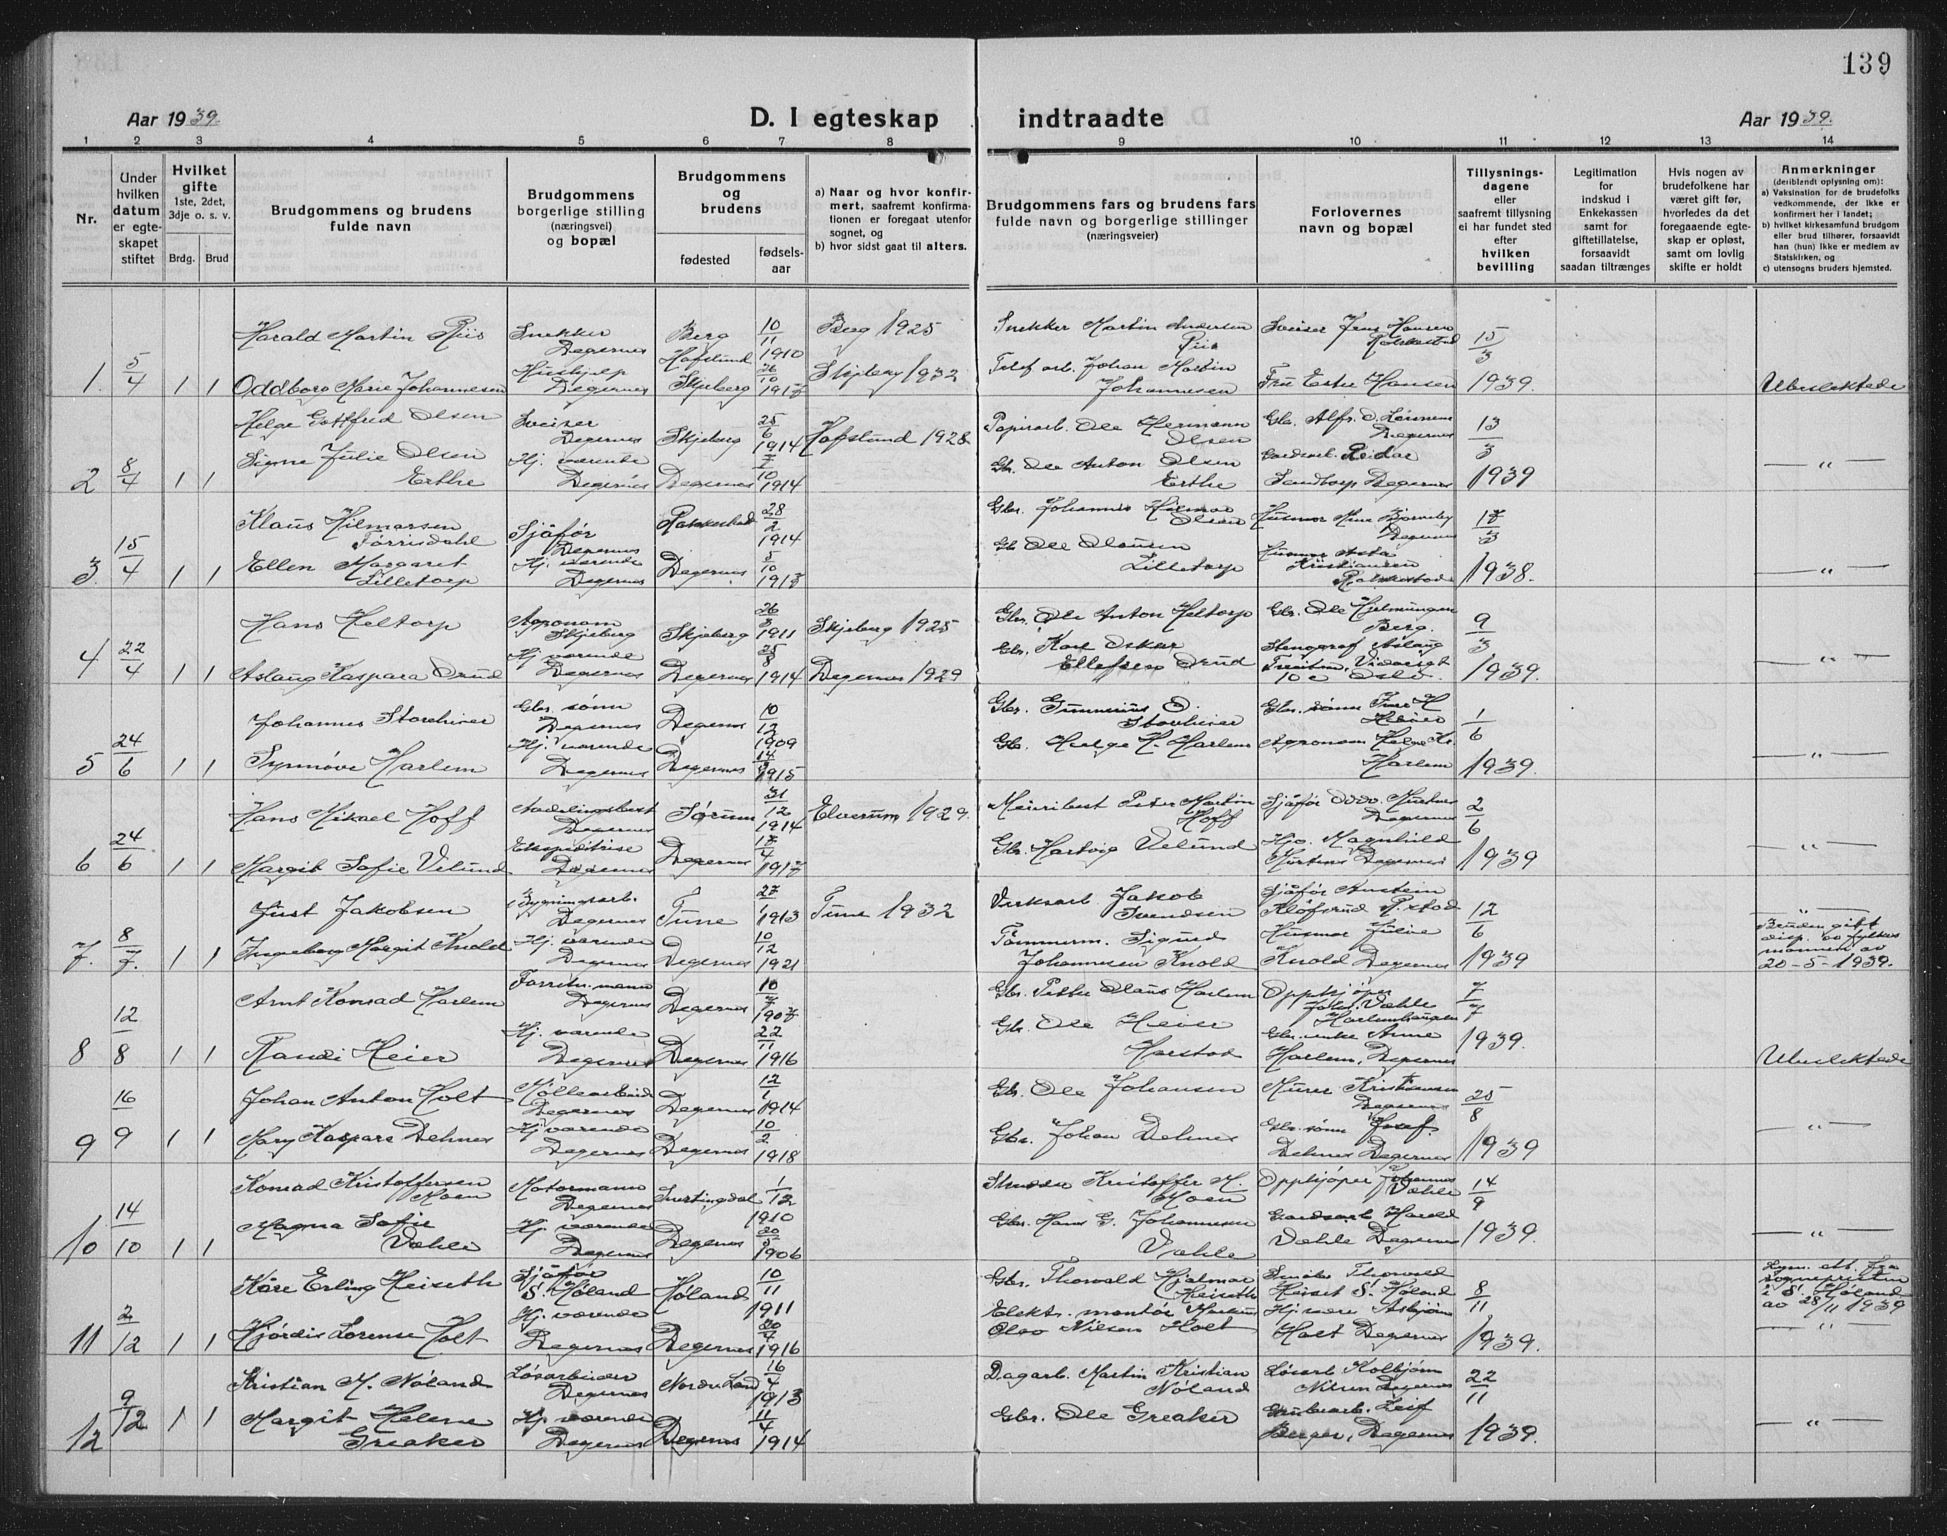 139
Aar 1939.
D. I egteskap indtraadte
Aar 1939.
1 2 3 4 5 6 7 8 9 10 11 12 13 14
Nr.
Under hvilken datum er egteskapet stiftet
Hvilket gifte 1ste, 2det, 3dje o. s. v.
Brdg. Brud
Brudgommens og brudens fulde navn
Brudgommens borgerlige stilling (næringsvei) og bopæl
Brudgommens og brudens
fødested
fødsels-aar
a) Naar og hvor konfirmert, saafremt konfirmationen er foregaat utenfor sognet, og
b) hvor sidst gaat til alters.
Brudgommens fars og brudens fars fulde navn og borgerlige stillinger (næringsveier)
Forlovernes navn og bopæl
Tillysnings-dagene eller saafremt tillysning ei har fundet sted efter hvilken bevilling
Legitimation for indskud i Enkekassen samt for giftetillatelse, forsaavidt saadan tiltrænges
Hvis nogen av brudefolkene har været gift før, hvorledes da det foregaaende egteskap er opløst, samt om lovlig skifte er holdt
Anmerkninger (deriblandt oplysning om):
a) Vaksination for de brudefolks vedkommende, der ikke er konfirmert her i landet;
b) hvilket kirkesamfund brudgom eller brud tilhører, forsaavidt han (hun) ikke er medlem av Statskirken, og
c) utensogns bruders hjemsted.
1. 5/4 1 1
Harald Martin Riis
Snekker Degernes
Berg 10/11 1910
Berg 1925
Snekker Martin Andersen Riis
Sveiser Jens Hansen Rakkestad
15/3 1939.
Oddborg Marie Johannesen
Hushjelp Degernes
Hafslund Skjeberg 26/10 1917
Skjeberg 1932
Telef arb. Johan Martin Johannesen
Fru Ester Hansen
Ubeslektede
2 8/4 1 1
Helge Gottfred Olsen
Sveiser Degernes
Skjeberg 25/6 1914
Hafslund 1928
Papirarb. Ole Hermann Olsen
Degernes
13/3 1939
Signe Julie Olsen Erthe
Hj. værende Degernes
Degernes 10 1914
Gbr. Ole Anton Olsen Erthe
Gardsarb. Reidar Sandtorp Degernes
— „ —
3. 15/4 1 1
Klaus Hilmarsen Tørrisdahl
Sjåfør Degernes
Rakkestad 28/2 1914
Gbr. Johannes Hilmar Olsen
Husmor Degernes
17/3 1938.
Ellen Margaret Lilletorp
Hj. værende Degernes
Degernes 5/10 1913
Gbr Ole Olausen Lilletorp
Husmor Asta Kristiansen Rakkestad
— „ —
4 22/4 1 1
Hans Heltorp
Agronom Skjeberg
Skjeberg 26/3 1911
Skjeberg 1925
Gbr. Ole Anton Heltorp
Gbr. Ole Berg.
9/3 1939.
Aslaug Kaspara Drud
Hj værende Degernes
Degernes 25/8 1914
Degernes 1929
Gbr. Karl Oskar Ellefsen Drud
Aslaug Oslo.
— „ —
5 24/6 1 1
Johannes Storeheier
Gbr. sønn Degernes
Degernes 10/12 1909
Gbr. Gunnerius O. Storeheier
Gbr. sønn
1/6 1939.
Synnøve Harlem
Hj. værende Degernes
Degernes 1915
Gbr. Helge H. Harlem
Agronom Helge Harlem
— „ —
6 24/6 1 1
Hans Mikael Hoff
Avdelingsbest Degernes
Sørum 31/12 1914
Elverum 1929.
Meieribest Peter Martin Hoff
Sjåfør Degernes
2/6 1939
Margit Sofie Velund
Ekspeditrise Degernes
Degernes 17/4 1917
Gbr. Hartvig Velund
Magnhild Degernes
— „ —
7. 8/7. 1 1
Just Jakobsen
Bygningsarb. Degernes
Tune 27/1 1913
Tune 1932
Verksarb. Jakob Svendsen
Sjåfør
12/6 1939
— „ —
Ingeborg Margit Knold
Hj. værende Degernes
Degernes 10/12 1921
Tømmerm. Sigurd Johannesen Knold
Husmor Julie Knold Degernes
Bruden gift disp. av fylkesmannen av 20-5-1939.
8 12/8 1 1
Arnt Konrad Harlem
Forretn. mann Degernes
Degernes 10/7 1907
Gbr. Petter Olaus Harlem
Oppkjøper Væhle Harlemhaugen
7/7 1939.
Randi Heier
Hj. værende Degernes
Degernes 22/11 1916
Gbr. Ole Heier Harstad
Gbr. enke Anne Harlem, Degernes
Ubeslektede
9 16/9 1 1
Johan Anton Holt
Møllearbeid Degernes
Degernes 12/1 1914
Gbr. Ole Johansen
Murer Kristiansen Degernes
25/8 1939
Mary Kaspara Delmes
Hj værende Degernes
Degernes 10/2 1918
Gbr. Johan Delmes
Gbr. sønn Josef. Delmes Degernes
— „ —
10 14/10 1 1
Konrad Kristoffersen Moen
Motormann Degernes
Snertingdal 1/12 1910
Kristoffer M. Moen
Oppkjøper Johannes Væhle
14/9 1939.
Magna Sofie Væhle
Hj. værende Degernes
Degernes 20/5 1906
Gbr. Hans G. Johannesen Væhle
Gardsarb Harald Væhle Degernes
— „ —
11 2/12 1 1
Kåre Erling Heiseth
Sjåfør S. Høland
Høland 10/11 1911
Gbr. Thorvald Hjalmar Heiseth
Thorvald S. Høland
8/11 1939.
Lysn. att. fra sognepresten i S. Høland av 28/11 1939
Hjørdis Lorense Holt
Hj. værende Degernes
Degernes 30/4 1916
Elekt. montør Olav Nilsen Holt
Hj være Asbjørn Holt Degernes
— „ —
12 9/12 1 1
Kristian M. Nøland
Løsarbeider Degernes
Nordre Land 16/4 1913
Dagarb. Martin Kristian Nøland
Løsarb Kolbjørn Nilsen Degernes
22/11 1939.
Margit Helene Greaker
Hj værende Degernes
Degernes 11/4 1914
Gbr. Ole Greaker
Grubearb. Leif Berger, Degernes
— „ —